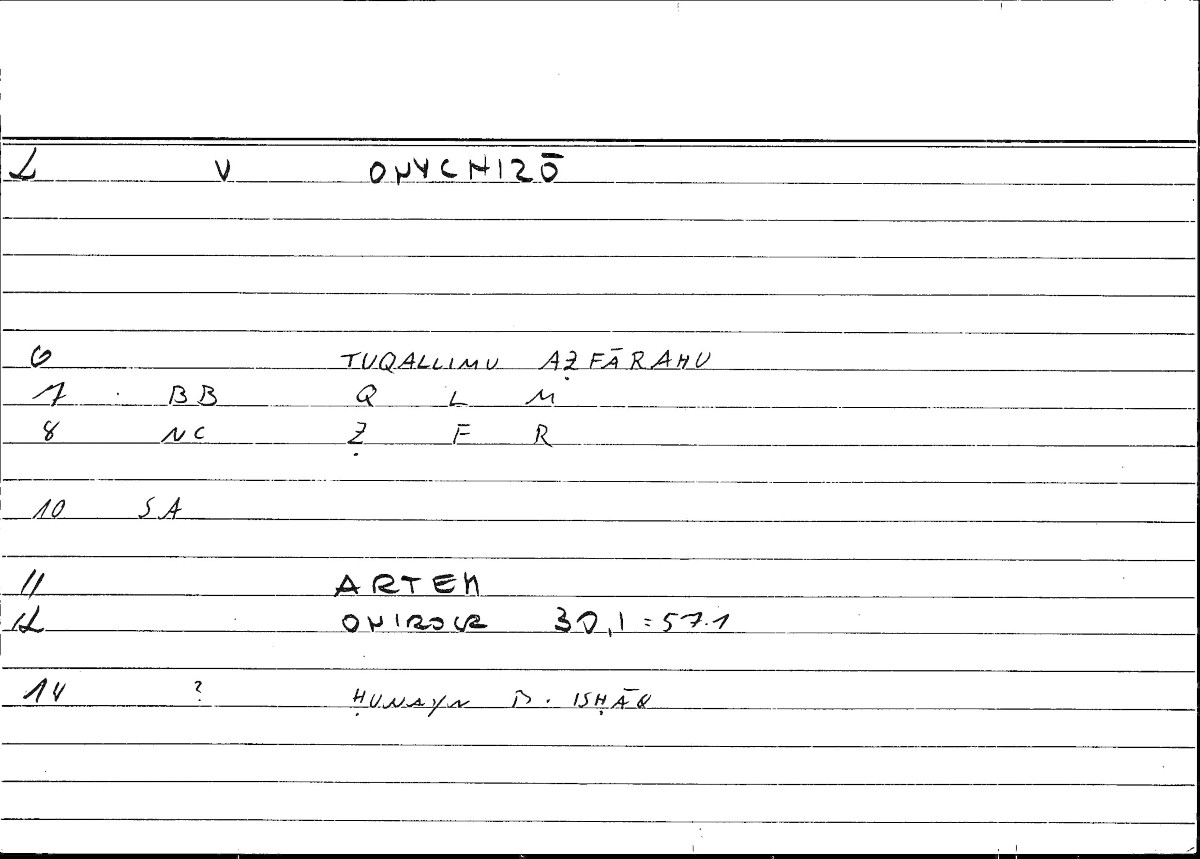 2 V ONYCHIZŌ
6 TUQALLIMU AẒFĀRAHU
7 BB Q L M
8 NC Ẓ F R
10 SA
11 ARTEM
12 ONIROCR 30,1 = 57.1
14 ? ḤUNAYN B. ISḤĀQ